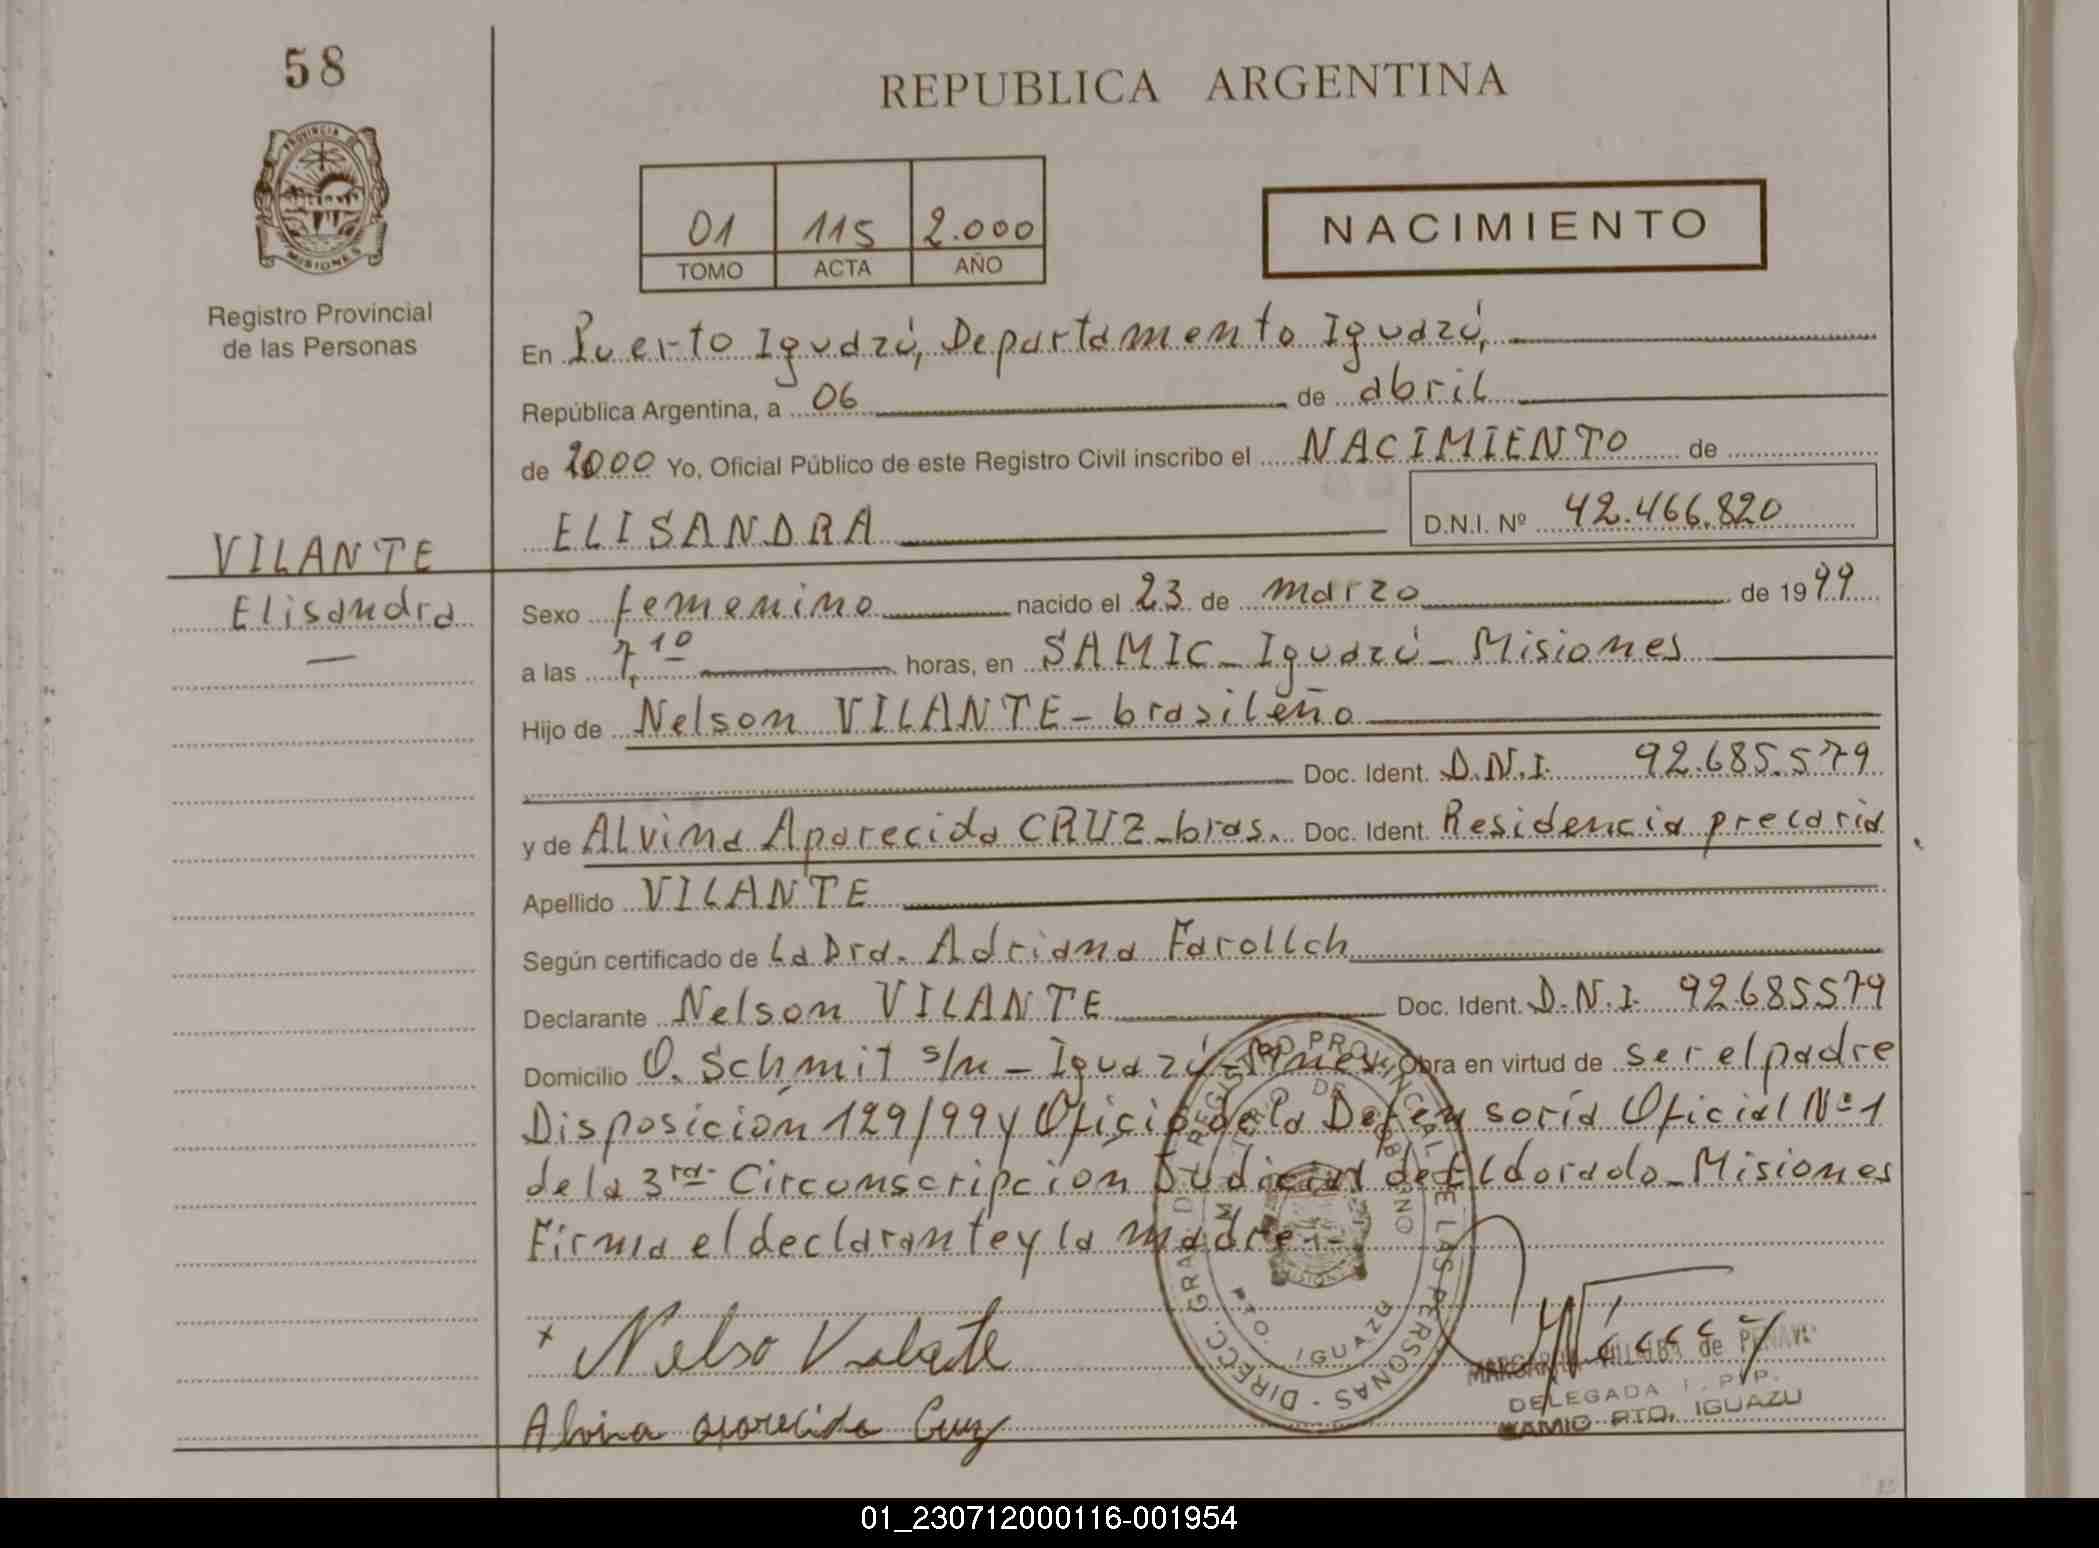 58
REPUBLICA ARGENTINA
PROVINCIA
MISIONES
Registro Provincial
de las Personas
01 115 2.000
TOMO ACTA AÑO
NACIMIENTO
En Puerto Iguazú, Departamento Iguazú,
República Argentina, a 06 de abril
de 2000 Yo, Oficial Público de este Registro Civil inscribo el NACIMIENTO de
ELISANDRA D.N.I. Nº 42.466.820
VILANTE
Elisandra
Sexo femenino nacido el 23 de marzo de 1999
a las 7,10 horas, en SAMIC - Iguazú - Misiones
Hijo de Nelson VILANTE - brasileño
Doc. Ident. D.N.I. 92.685.579
y de Alvina Aparecida CRUZ - bras. Doc. Ident. Residencia precaria
Apellido VILANTE
Según certificado de La Dra. Adriana Farollch
Declarante Nelson VILANTE Doc. Ident. D.N.I. 92685579
Domicilio O. Schmit s/n - Iguazú - Mnes. Obra en virtud de ser el padre
Disposición 129/99 y Oficio de la Defensoría Oficial Nº 1
de la 3ra. Circunscripcion Judicial de Eldorado - Misiones
Firma el declarante y la madre -1-
x Nelso Vilate
Alvina aparecida Cruz
DIRECC. GRAL. D. REGISTRO PROVINCIAL DE LAS PERSONAS
PTO. IGUAZU
DELEGADA
SAMIC PTO. IGUAZU
01_230712000116-001954